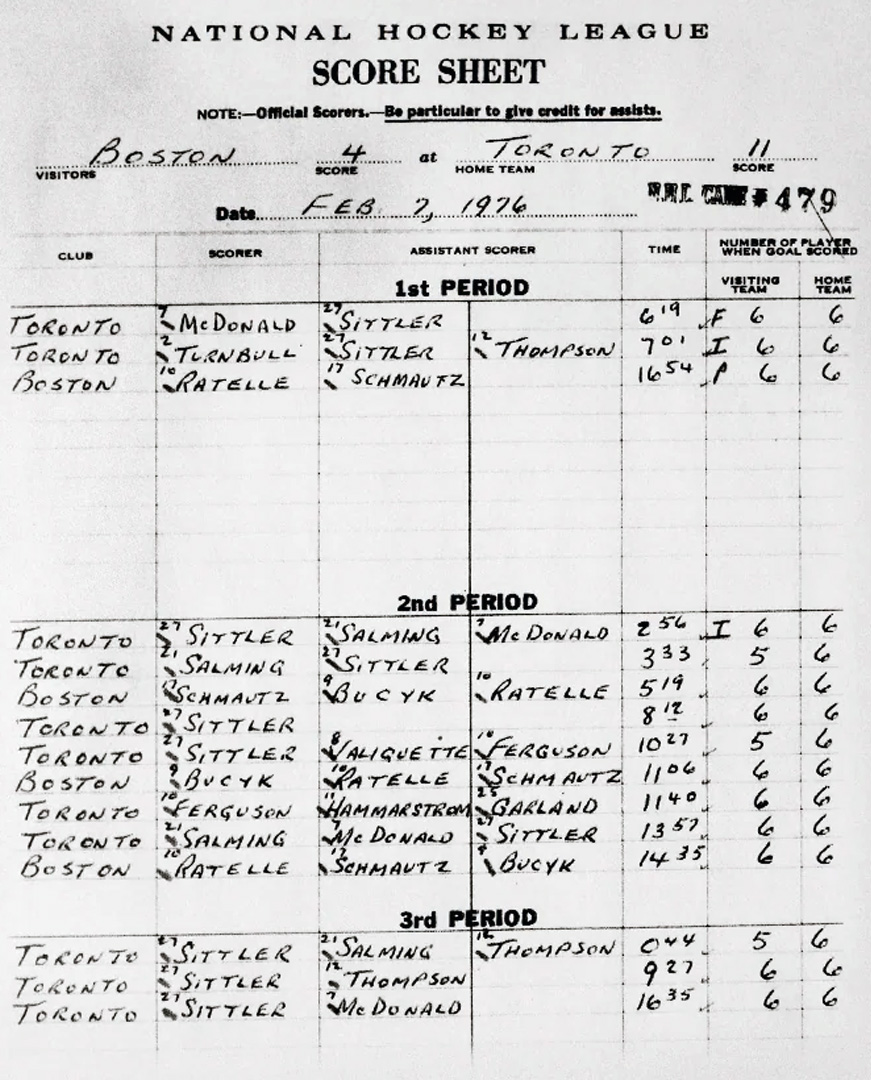 NATIONAL HOCKEY LEAGUE
SCORE SHEET
NOTE:—Official Scorers.—Be particular to give credit for assists.
BOSTON 4 at TORONTO 11
VISITORS SCORE HOME TEAM SCORE
Date FEB 7, 1976 N.H.L. GAME #479
CLUB SCORER ASSISTANT SCORER TIME NUMBER OF PLAYER WHEN GOAL SCORED
VISITING TEAM HOME TEAM
1st PERIOD
TORONTO 7 McDONALD 27 SITTLER 6 19 F 6 6
TORONTO 2 TURNBULL 27 SITTLER 12 THOMPSON 7 01 I 6 6
BOSTON 10 RATELLE 17 SCHMAUTZ 16 54 P 6 6
2nd PERIOD
TORONTO 27 SITTLER 21 SALMING 7 McDONALD 2 56 I 6 6
TORONTO 21 SALMING 27 SITTLER 3 33 5 6
BOSTON 17 SCHMAUTZ 9 BUCYK 10 RATELLE 5 19 6 6
TORONTO 27 SITTLER 8 12 6 6
TORONTO 27 SITTLER 8 VALIQUETTE 10 FERGUSON 10 27 5 6
BOSTON 9 BUCYK 10 RATELLE 17 SCHMAUTZ 11 06 6 6
TORONTO 10 FERGUSON 11 HAMMARSTROM 25 GARLAND 11 40 6 6
TORONTO 21 SALMING 7 McDONALD 27 SITTLER 13 57 6 6
BOSTON 10 RATELLE 17 SCHMAUTZ 9 BUCYK 14 35 6 6
3rd PERIOD
TORONTO 27 SITTLER 21 SALMING 12 THOMPSON 0 44 5 6
TORONTO 27 SITTLER 12 THOMPSON 9 27 6 6
TORONTO 27 SITTLER 7 McDONALD 16 35 6 6